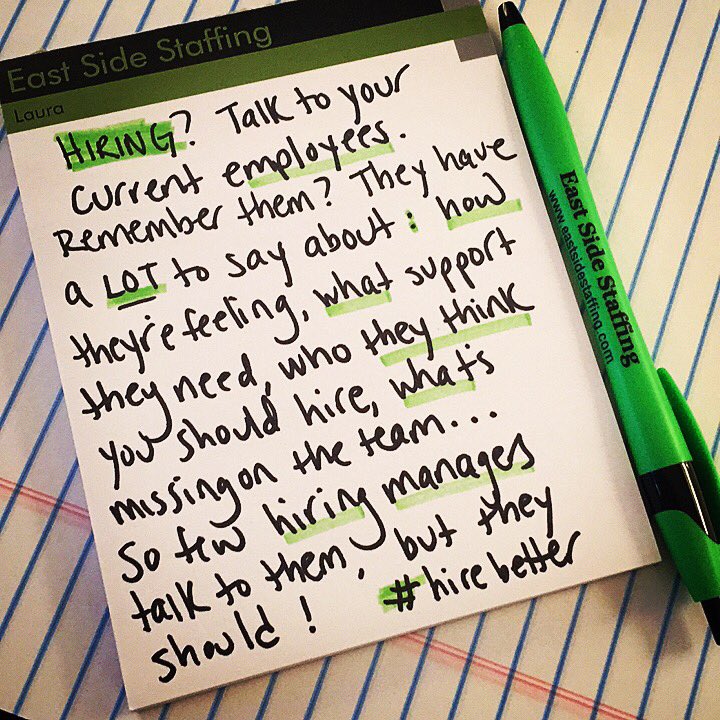 East Side Staffing
Laura
HIRING? Talk to your
current employees.
Remember them? They have
a LOT to say about: how
they're feeling, what support
they need, who they think
you should hire, what's
missing on the team...
So few hiring manages
talk to them, but they
should! #hirebetter
East Side Staffing
www.eastsidestaffing.com